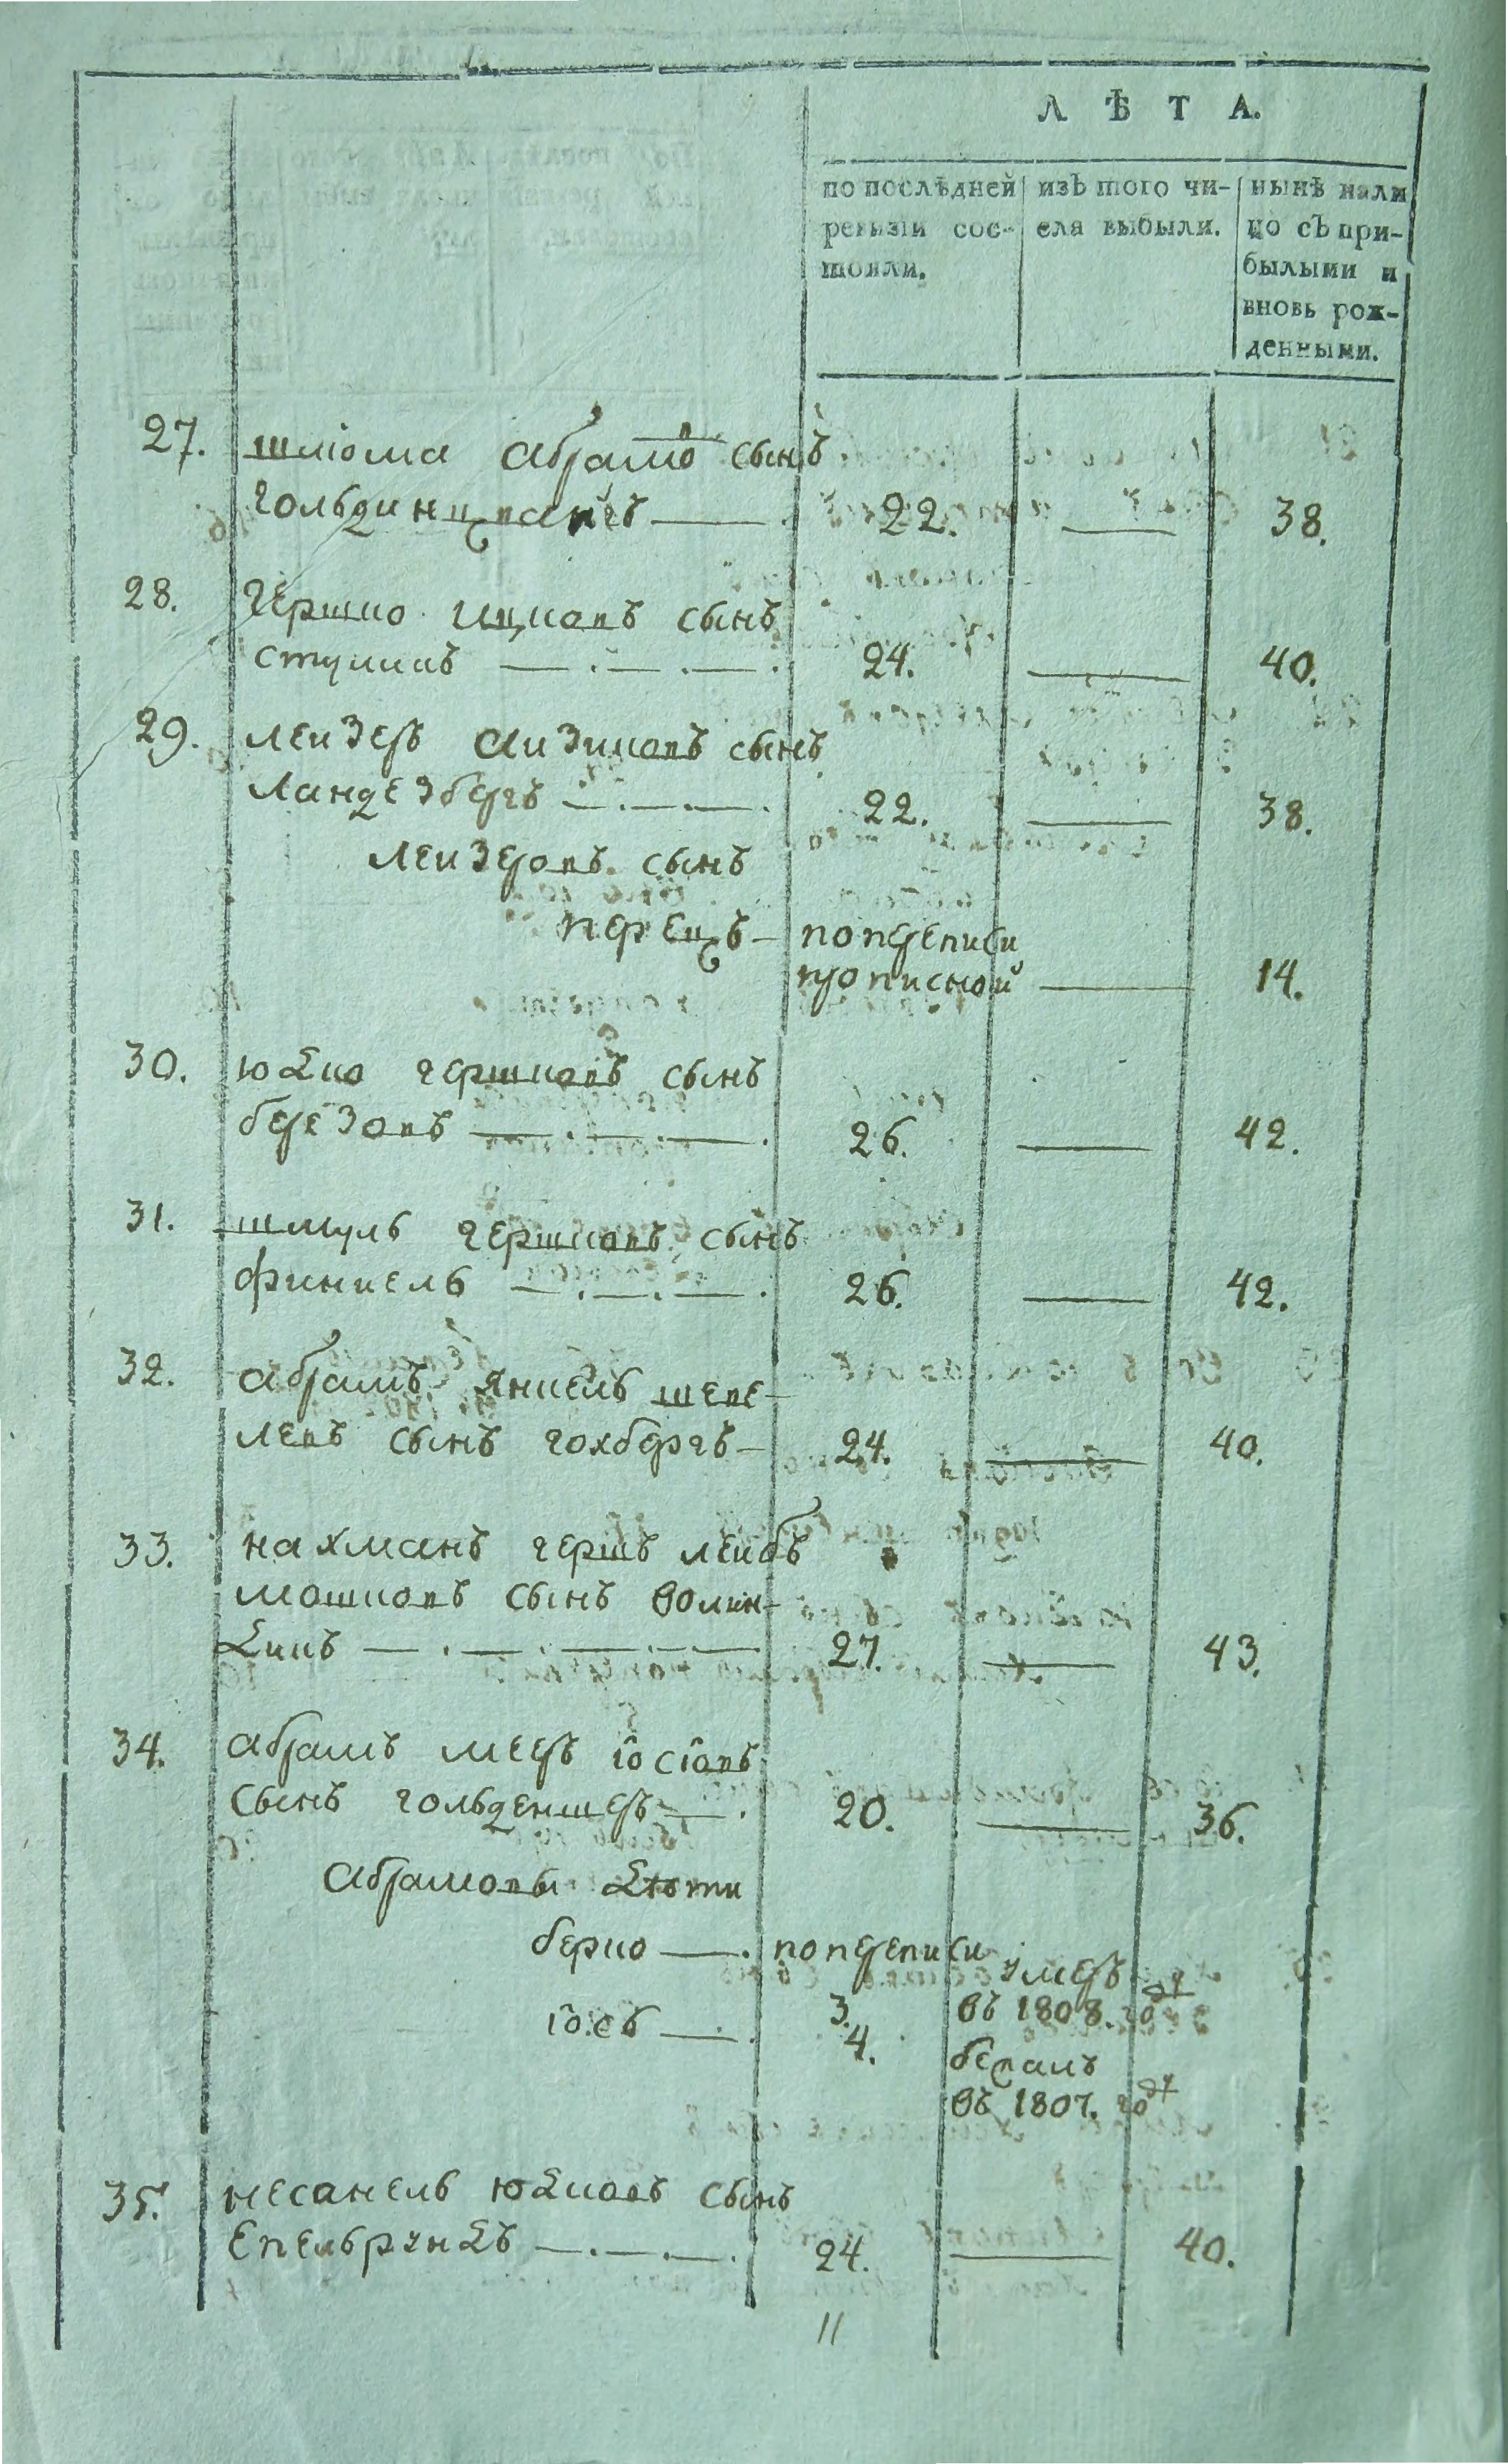 ЛѢТА.
по послѣдней ревизіи состояли.
изъ того числа выбыли.
нынѣ налицо съ прибылыми и вновь рожденными.
27. шліома абрамов сынъ
22. 38.
28. гершко ицковъ сынъ
24. 40.
29. лейзеръ айзиковъ сынъ
ландезбергъ 22. 38.
лейзеровъ сынъ
перецъ попереписи
прописной 14.
30. юдко гершковъ сынъ
березовъ 26. 42.
31. шмуль гершковъ сынъ
финкель 26. 42.
32. абрамъ янкель шеве-
левъ сынъ гохбергъ 24. 40.
33. нахманъ гершъ лейбъ
мошковъ сынъ волин-
27. 43.
34. абрамъ мееръ іосіовъ
сынъ гольденшеръ 20. 36.
абрамовы дѣти
берко попереписи умеръ
3. въ 1808. году
іось 4. бежалъ
въ 1807. году
35. несанель юдковъ сынъ
24. 40.
11